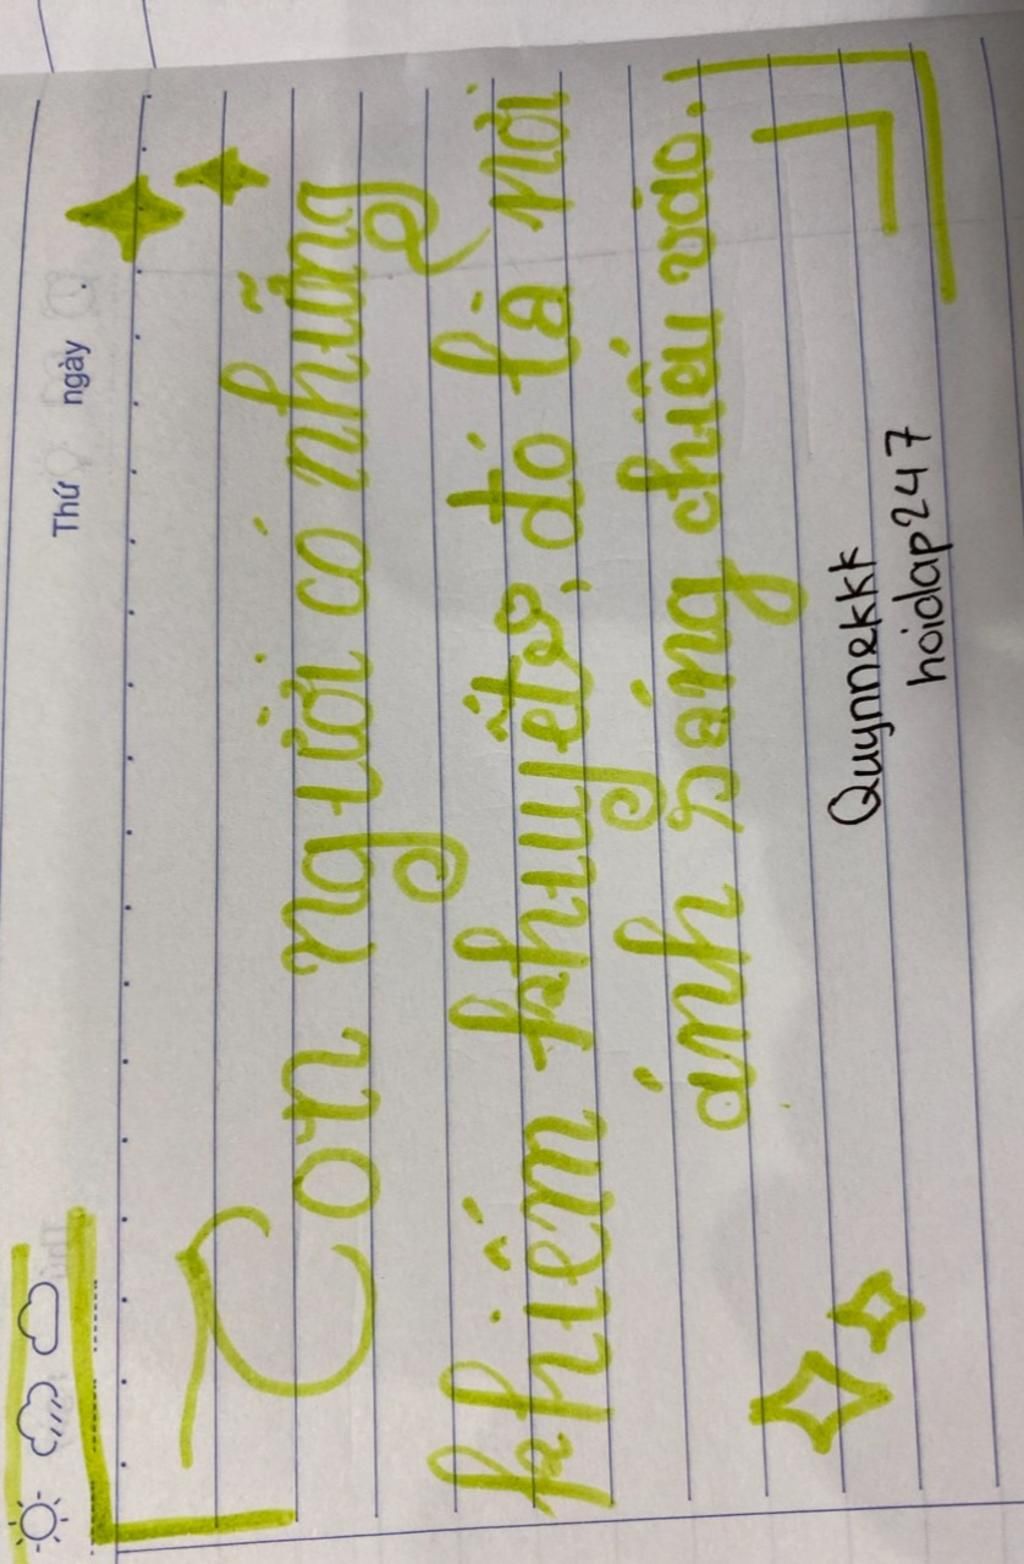 Thứ ngày
Con người có những
khiếm khuyết, đó là nơi
ánh sáng chiếu vào.
Quynnekkk
hoidap247